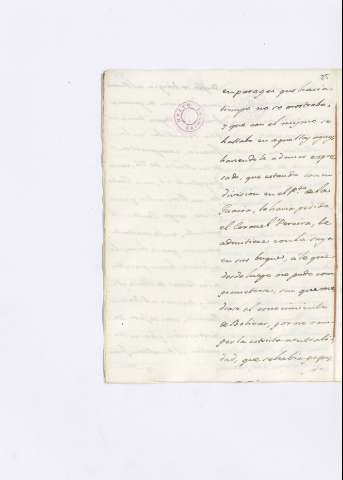 25
en parages que hacia
tiempo no se mostraba,
y que con el mismo se
hallaba en aquellas aguas
haviendole ademas expre-
sado, que estando con su
division en el Pto. de la
Guaira, le havia pedido
el Coronel Pereira, le
admitiese con la suya
en sus buques, a lo que
desde luego no pudo com-
prometerse, sin que me-
diase el conocimiento
de Bolivar, por no rom-
per la estricta neutrali-
dad, que se habia